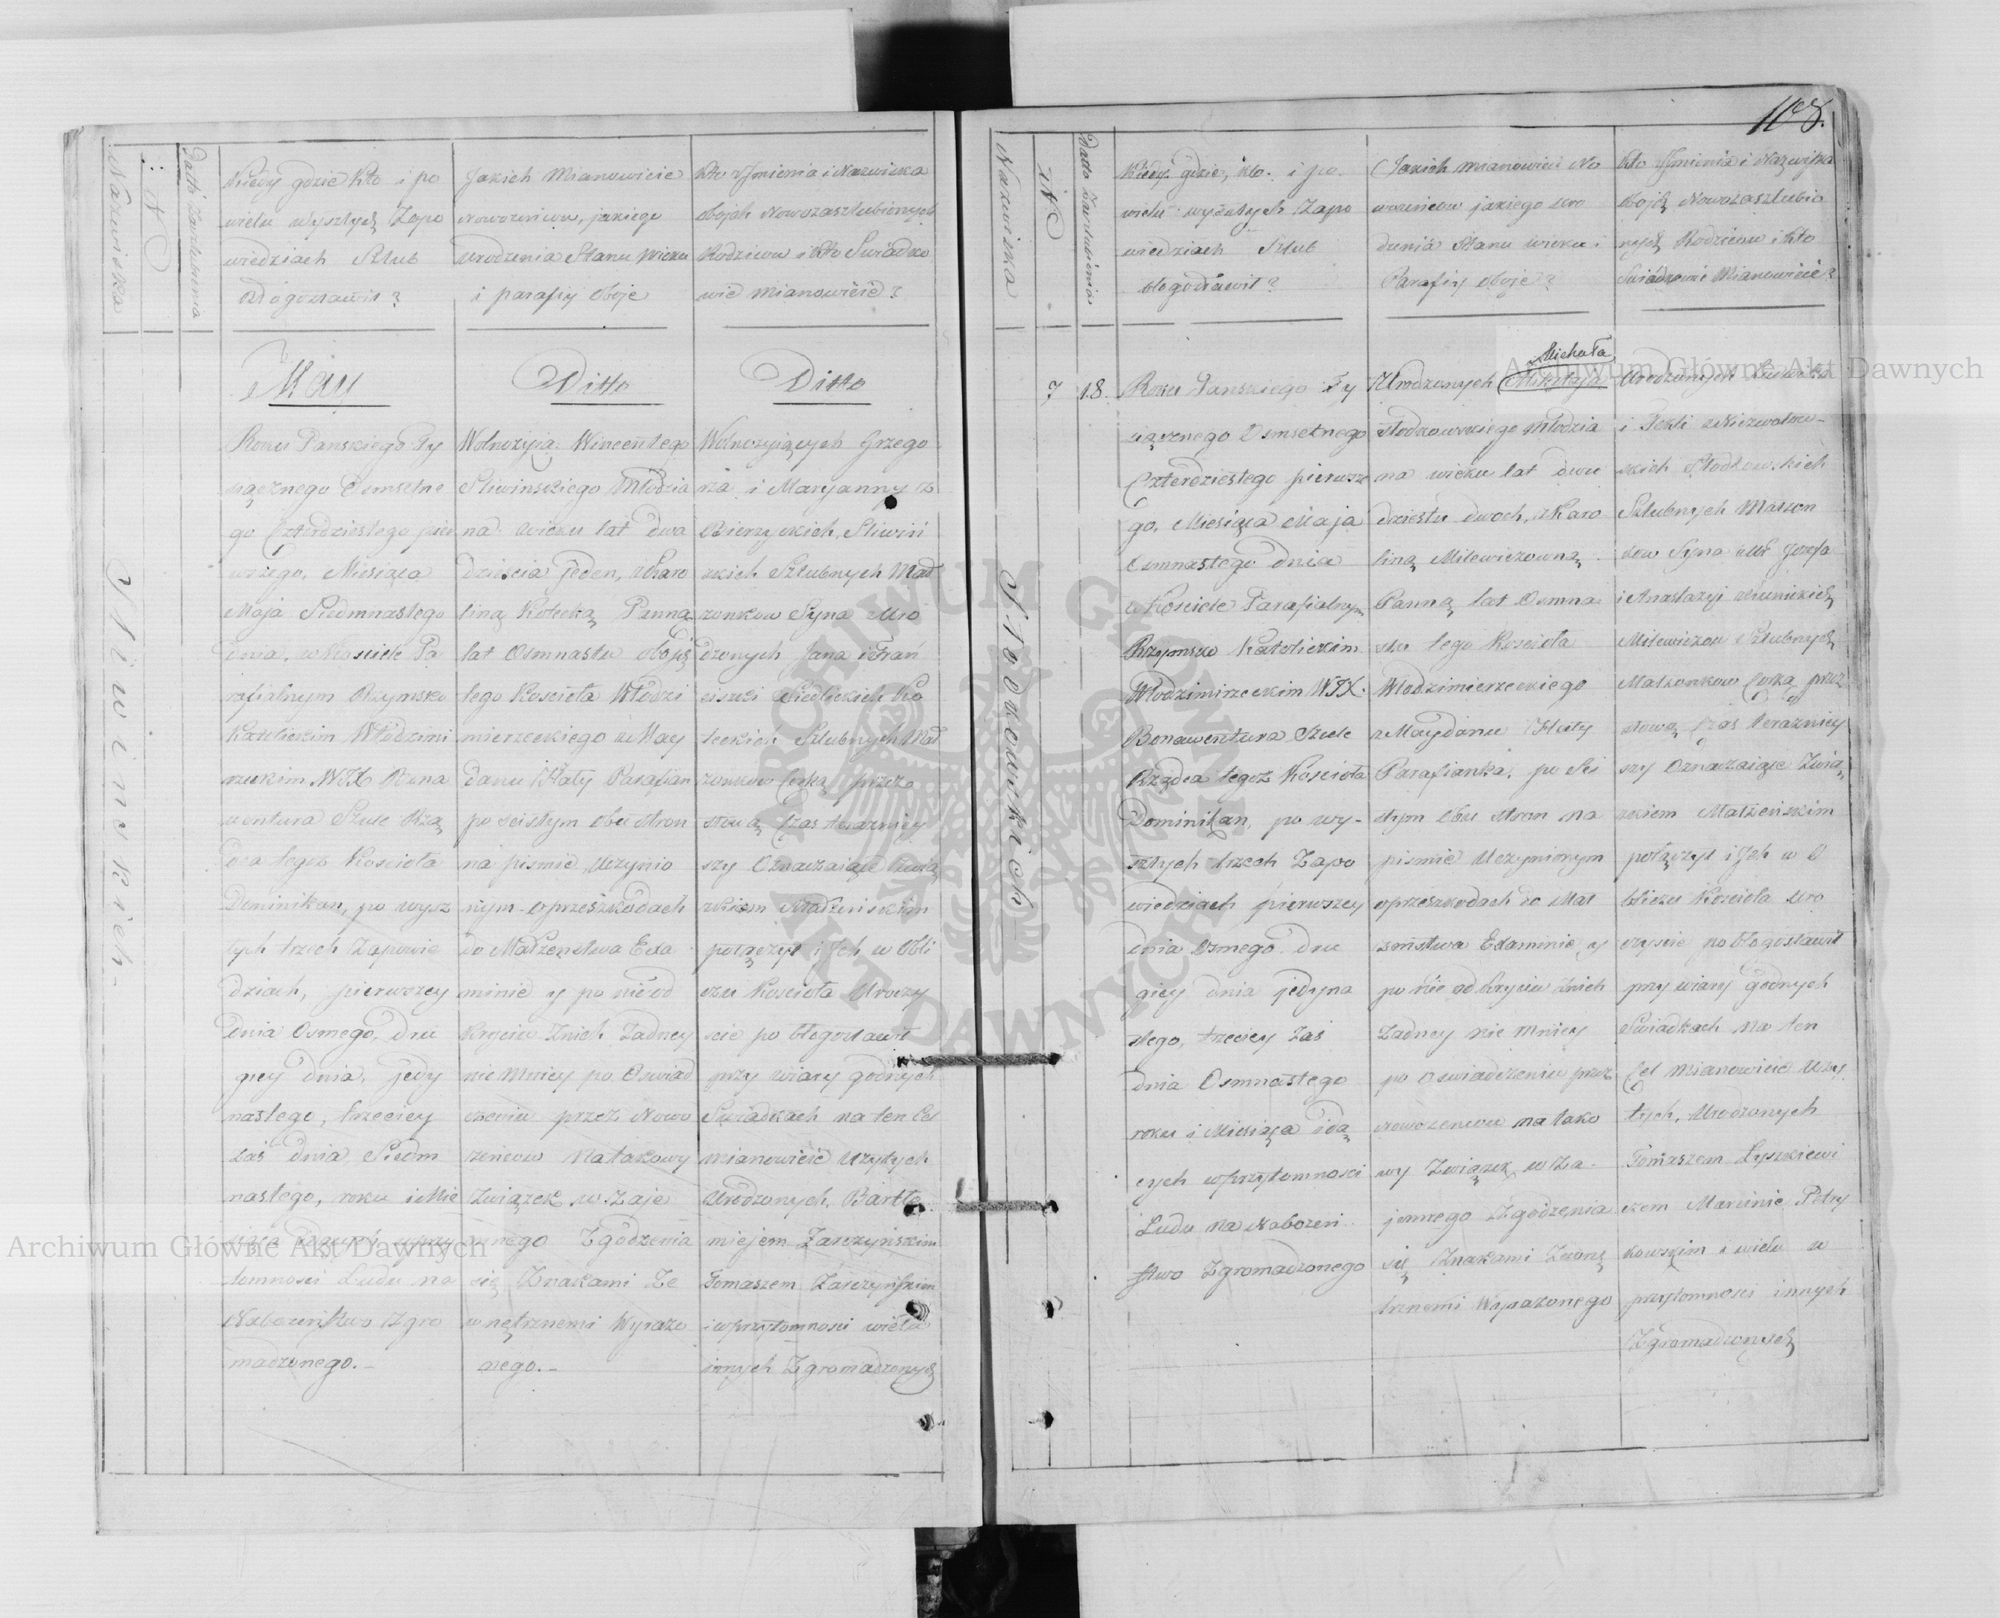 Nazwiska
N
Data Zaslubienia
Kiedy gdzie kto i po
wielu wyszłych Zapo
wiedziach Szlub
błogosławił?
Jakich Mianowicie
Nowożeńców, jakiego
urodzenia Stanu Wieku
i parafiy oboje
Kto z Jmienia i Nazwiska
obojch Nowozaszlubionych
Rodziców i kto Swiadko
wie mianowicie?
May
Ditto
Ditto
Sliwinskich
Roku Panskiego Ty
siącznego Osmsetne
go Czterdziestego pier
wszego, Miesiąca
Maja Siedmnastego
dnia, w Kosciele Pa
rafialnym Rzymsko
Katolickim Włodzimi
rzeckim, WJX Bona
wentura Szulc Rzą
dca tegoż Kościoła
Dominikan, po wysz
łych trzech Zapowie
dziach, pierwszey
dnia Osmego, dru
giey dnia, jedy
nastego, trzeciey
zaś dnia Siedm
nastego, roku i Mie
tomnosci Ludu na
Nabożeństwo Zgro
madzonego.
Wolnożyją: Wincentego
Sliwinskiego Młodzia
na wieku lat dwa
dzieścia jeden, z Karo
liną Kołecką Panną
lat Osmnastu obojch
tego Kościoła Włodzi
mierzeckiego z May
danu Huty Parafian
po scisłym obu stron
na pismie, uczynio
nym o przeszkodach
do Małżeństwa Exa
minie y po nieod
kryciu Znich Żadney
nie Mniey po Oswiad
czeniu przez Nowo
żeńców Natakowy
Związek w Zaje
mnego Zgodzenia
się Znakami Ze
wnętrznemi Wyrażo
nego.
Wolnożyjących Grzego
rza i Maryanny z
Bierzyckich, Sliwiń
skich Szlubnych Mał
żonków Syna Uro
dzonych Jana i Fran
ciszki Siedleckich Ko
łeckich Szlubnych Mał
żonków Corką przez
słowa Czas teraźniey
szy Oznaczaiące Zwią
zkiem Małżeńskim
połączył i Jch w Obli
czu Kościoła Uroczy
scie po błogosławił
przy wiary godnych
Swiadkach na ten Cel
mianowicie Użytych
Urodzonych, Bartło
miejem Zarczyńskim
Tomaszem Zarczyńskim
i w przytomnosci wielu
innych Zgromadzonych
118.
Nazwiska
N
Data Zaszlubienia
Kiedy gdzie, kto. i po.
wielu wyszłych Zapo
wiedziach Szlub
błogosławił?
Jakich mianowicie No
wożeńców jakiego uro
dzenia Stanu wieku i
Parafiy oboje?
Kto z Jmienia i Nazwiska
obojch Nowozaszlubio
nych Rodziców i kto
Swiadkowie Mianowicie?
Słodkowskich
7
18.
Roku Panskiego Ty
siącznego Osmsetnego
Czterdziestego pierwsze
go, Miesiąca Maja
Osmnastego dnia
w Kościele Parafialnym
Rzymsko Katolickim
Włodzimirzeckim WJX.
Bonawentura Szulc
Rządca tegoż Kościoła
Dominikan, po wy-
szłych trzech Zapo
wiedziach pierwszey
dnia Osmego dru
giey dnia jedyna
stego, trzeciey zaś
dnia Osmnastego
roku i Miesiąca idą
cych w przytomnosci
Ludu na Nabożeń
stwo Zgromadzonego
Michała
Urodzonych Mikołaja
Słodkowskiego Młodzia
na wieku lat dwu
dziestu dwoch, z Karo
liną Milewiczowną
Panną lat Osmna
stu tego Kościoła
Włodzimierzeckiego
z Maydanu Huty
Parafianka, po Sci
słym Obu stron na
pismie Uczynionym
o przeszkodach do Mał
żeństwa Examinie y
po nie odkryciu Znich
Żadney nie mniey
po Oswiadczeniu przez
Nowożeńców na tako
wy Związek w Za
jemnego Zgodzenia
się Znakami Zewnę
trznemi Wyrażonego
Urodzonych Ludwika
i Tekli
skich Słodkowskich
Szlubnych Małżon
ków Syna i Ur Jozefa
i Anastazyi
Milewiczow Szlubnych
Małżonkow Corką przez
słowa Czas teraźniey
szy Oznaczaiące Zwią
zkiem Małżeńskim
połączył i Jch w O
bliczu Kościoła Uro
czyscie po błogosławił
przy wiary godnych
Swiadkach na ten
Cel mianowicie Uży
tych, Urodzonych
Tomaszem Łyszkiewi
czem Marcinie Petry
kowskim i wielu w
przytomnosci innych
Zgromadzonych
Archiwum Główne Akt Dawnych
Archiwum Główne Akt Dawnych
ARCHIWUM GŁÓWNE AKT DAWNYCH